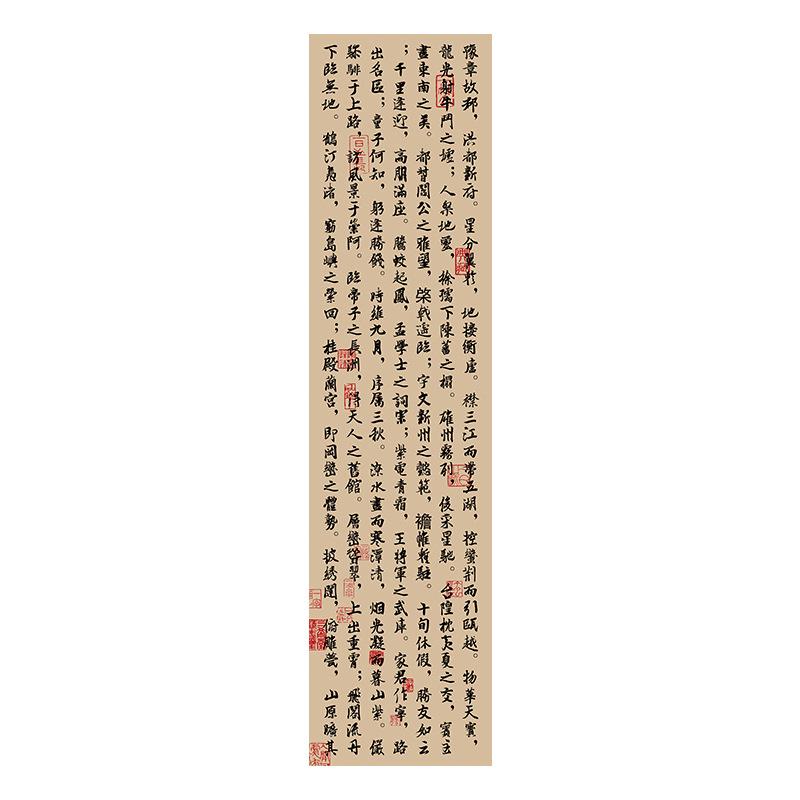 豫章故郡，洪都新府。星分翼軫，地接衡廬。襟三江而帶五湖，控蠻荆而引甌越。物華天寶，
龍光射牛鬥之墟；人傑地靈，徐孺下陳蕃之榻。雄州霧列，俊采星馳。台隍枕夷夏之交，賓主
盡東南之美。都督閻公之雅望，棨戟遥臨；宇文新州之懿範，襜帷暫駐。十旬休假，勝友如云
；千里逢迎，高朋滿座。騰蛟起鳳，孟學士之詞宗；紫電青霜，王將軍之武庫。家君作宰，路
出名區；童子何知，躬逢勝餞。時維九月，序屬三秋。潦水盡而寒潭清，烟光凝而暮山紫。儼
驂騑于上路，訪風景于崇阿。臨帝子之長洲，得天人之舊館。層巒聳翠，上出重霄；飛閣流丹
下臨無地。鶴汀凫渚，窮島嶼之縈回；桂殿蘭宫，即岡巒之體勢。披綉闥，俯雕甍，山原曠其